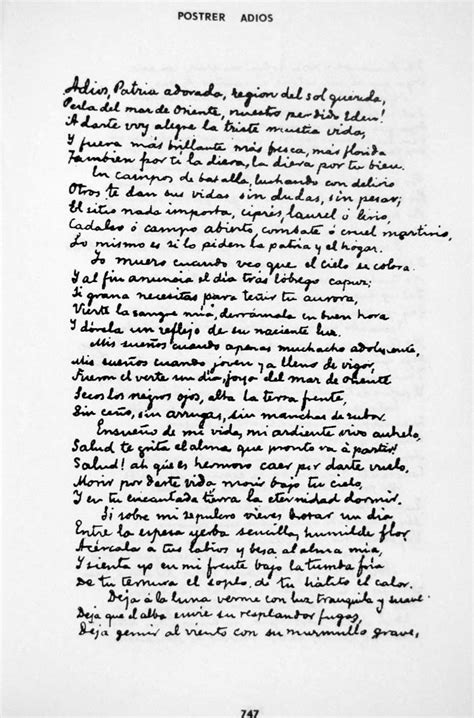 POSTRER ADIOS
Adios, Patria adorada, region del sol querida,
Perla del mar de Oriente, nuestro perdido Eden!
A darte voy alegre la triste mustia vida,
Y fuera más brillante más fresca, más florida
Tambien por tí la diera, la diera por tu bien.
En campos de batalla, luchando con delirio
Otros te dan sus vidas sin dudas, sin pesar;
El sitio nada importa, ciprés, laurel ó lirio,
Cadalso ó campo abierto, combate ó cruel martirio,
Lo mismo es si lo piden la patria y el hogar.
Yo muero cuando veo que el cielo se colora
Y al fin anuncia el día trás lóbrego capuz;
Si grana necesitas para teñir tu aurora,
Vierte la sangre mía, derrámala en buen hora
Y dórela un reflejo de su naciente luz.
Mis sueños cuando apenas muchacho adolescente,
Mis sueños cuando joven ya lleno de vigor,
Fueron el verte un día, joya del mar de oriente
Secos los negros ojos, alta la tersa frente,
Sin ceño, sin arrugas, sin manchas de rubor.
Ensueño de mi vida, mi ardiente vivo anhelo,
Salud te grita el alma que pronto va á partir!
Salud! ah que es hermoso caer por darte vuelo,
Morir por darte vida morir bajo tu cielo,
Y en tu encantada tierra la eternidad dormir.
Si sobre mi sepulcro vieres brotar un dia
Entre la espesa yerba sencilla, humilde flor
Acércala a tus labios y besa al alma mía,
Y sienta yo en mi frente bajo la tumba fría
De tu ternura el soplo, de tu hálito el calor.
Deja á la luna verme con luz tranquila y suave
Deja que el alba envíe su resplandor fugaz,
Deja gemir al viento con su murmullo grave,
747